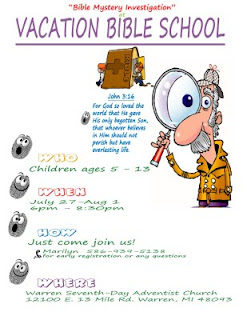 "Bible Mystery Investigation"
at
VACATION BIBLE SCHOOL
John 3:16
For God so loved the
world that He gave
His only begotten Son,
that whoever believes
in Him should not
perish but have
everlasting life.
WHO
Children ages 5 - 13
WHEN
July 27-Aug 1
6pm - 8:30pm
HOW
Just come join us!
Marilyn 586-939-5138
for early registration or any questions
WHERE
Warren Seventh-Day Adventist Church
12100 E. 13 Mile Rd. Warren, MI 48093